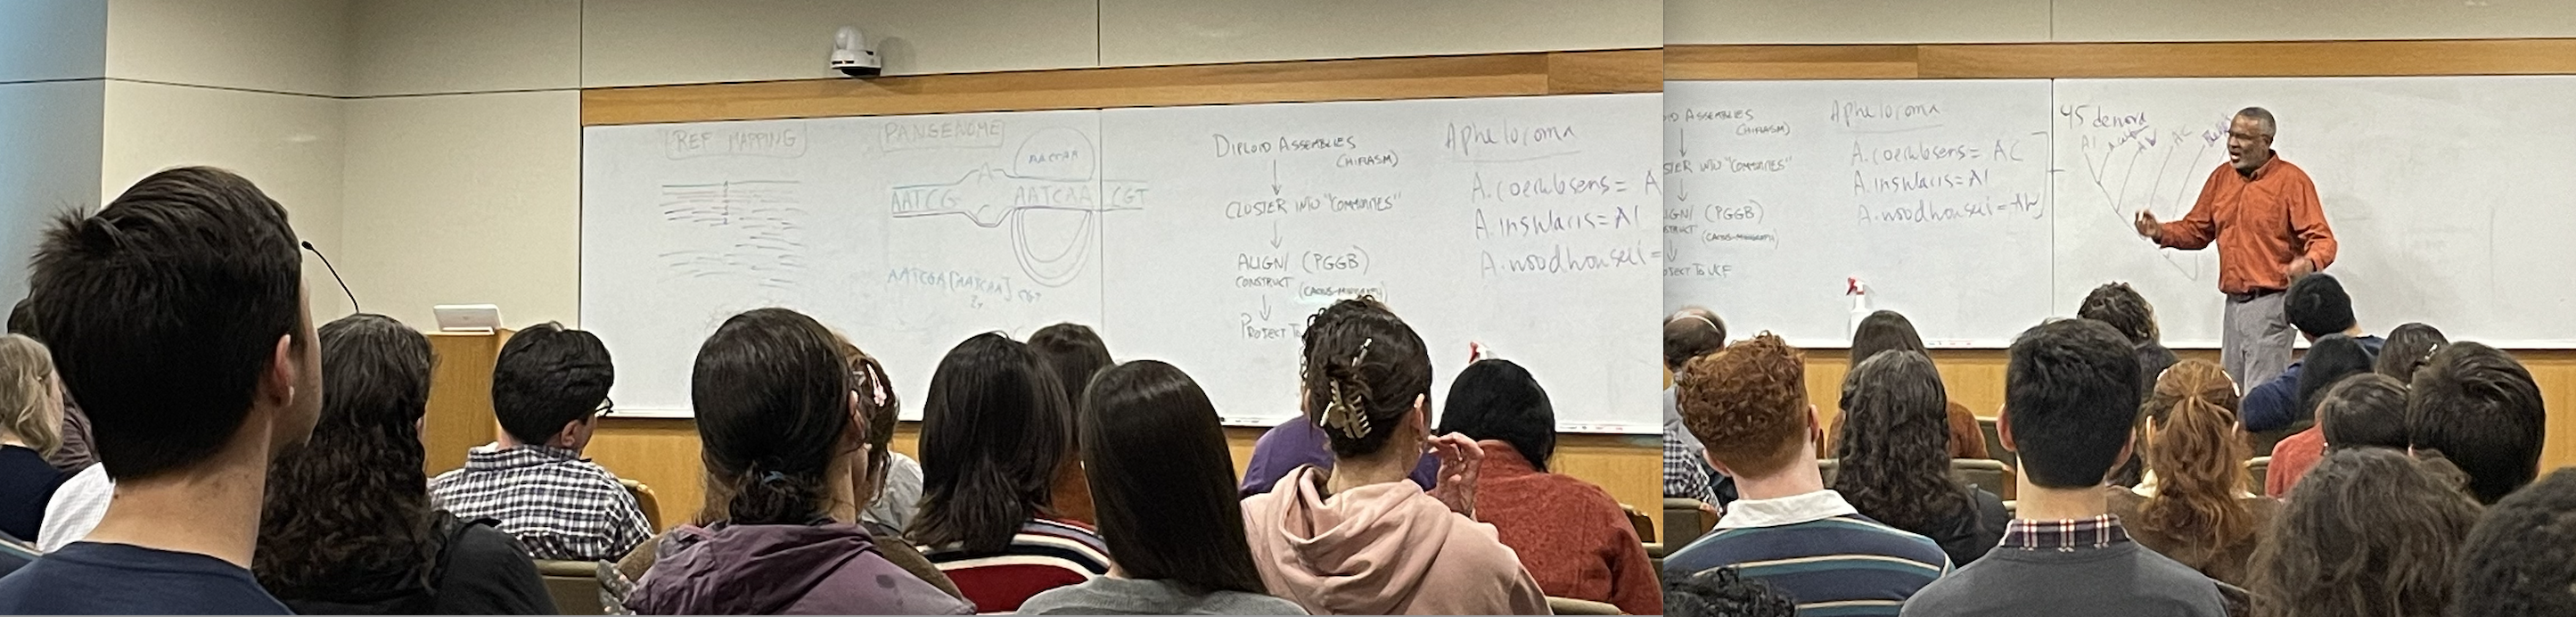 REF MAPPING
PANGENOME
A
AATCG
AATCAA
CGT
C
AATCGA[AATCAA]
2x
CGT
DIPLOID ASSEMBLIES
(HIFIASM)
CLUSTER INTO "COMMUNITIES"
ALIGN/ (PGGB)
CONSTRUCT (CACTUS-MINIGRAPH)
PROJECT TO
Apheloroma
A. coerulesens = A
A. insularis = AI
A. woodhouseii =
ASSEMBLIES
(HIFIASM)
INTO "COMMUNITIES"
(PGGB)
(CACTUS-MINIGRAPH)
TO VCF
Apheloroma
A. coerulesens = AC
A. insularis = AI
A. woodhouseii = AW
45 denova
AI
AW
AC